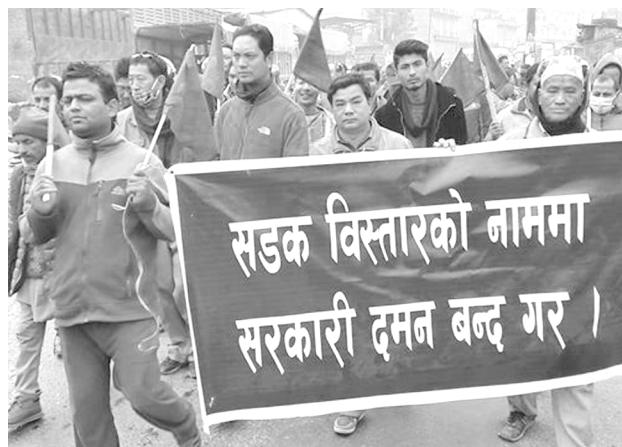 सडक विस्तारको नाममा
सरकारी दमन बन्द गर ।